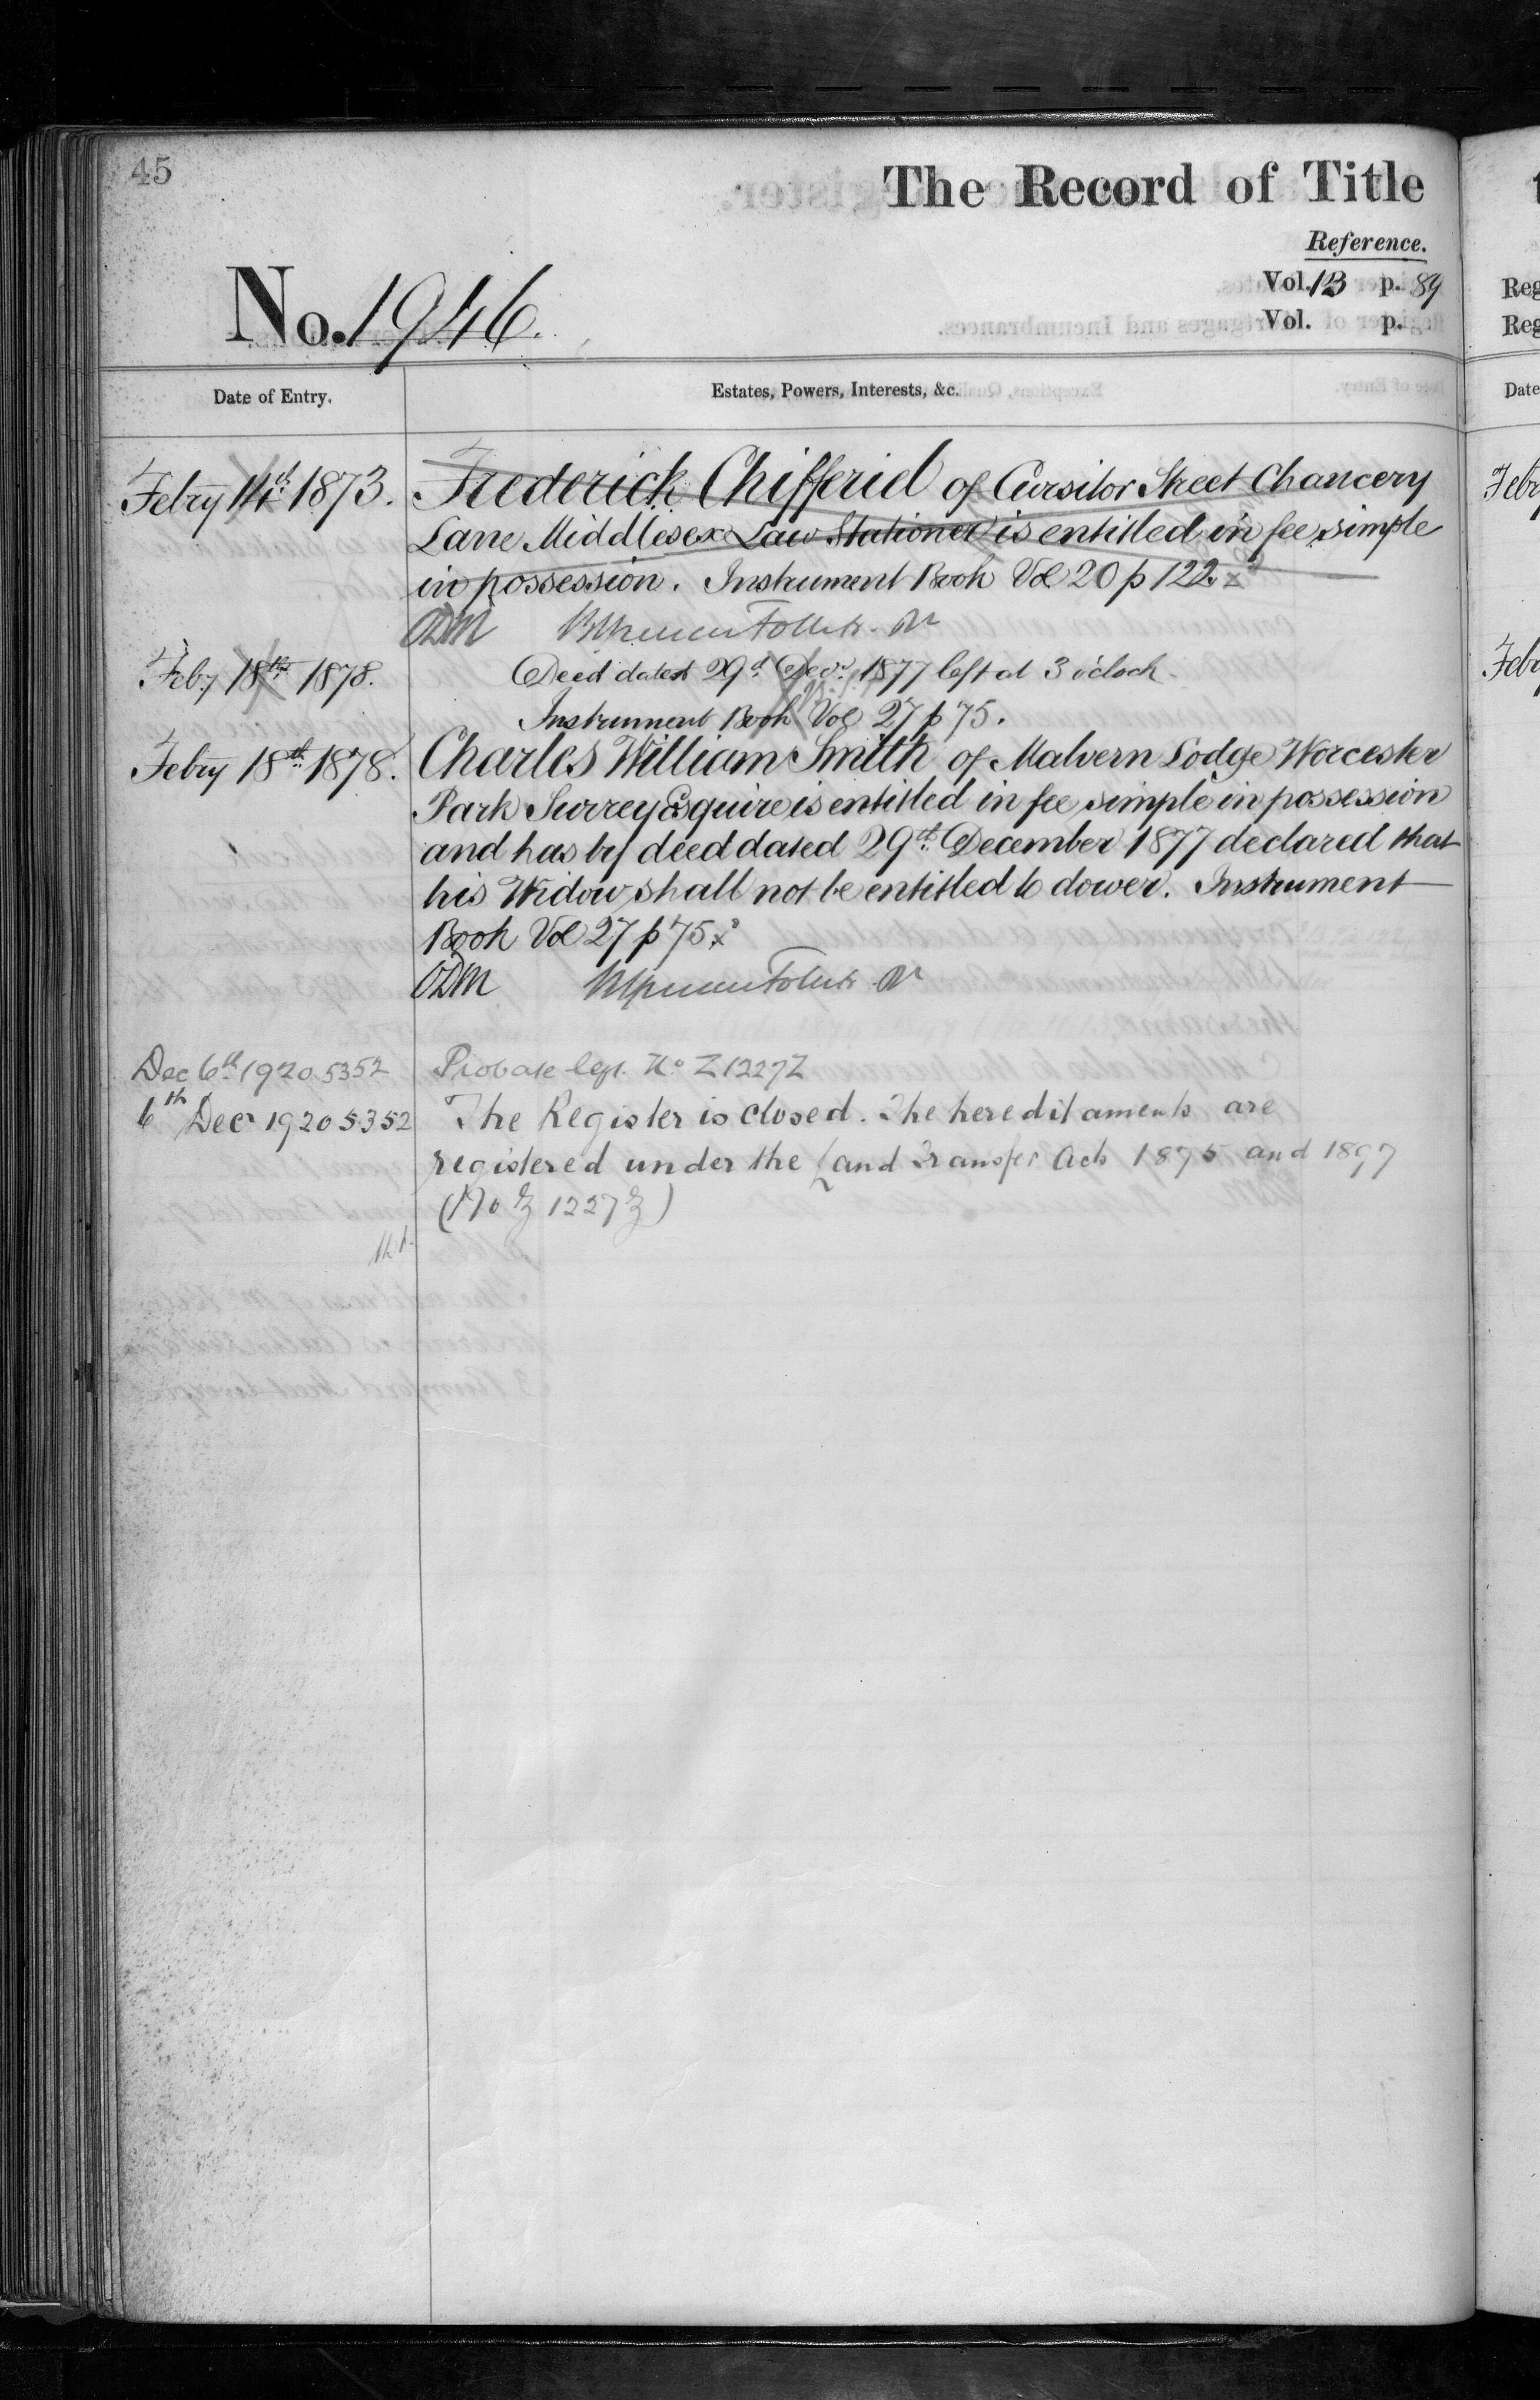 45
The Record of Title
Reference.
Vol. 13 p. 89
Vol. p.
No. 1946.
Date of Entry.
Estates, Powers, Interests, &c.
Febry 14th 1873. Frederick Chifferiel of Cursitor Street Chancery
Lane Middlesex Law Stationer is entitled in fee simple
in possession. Instrument Book Vol 20 p 122.
ODM
Feby 18th 1878. Deed dated 29th Decr 1877 left at 3 o'clock.
Instrument Book Vol 27 p 75.
Febry 18th 1878. Charles William Smith of Malvern Lodge Worcester
Park Surrey Esquire is entitled in fee simple in possession
and has by deed dated 29th December 1877 declared that
his Widow shall not be entitled to dower. Instrument
Book Vol 27 p 75
ODM
Dec 6th 1920 5352 Probate Regd. No Z1227Z
6th Decr 1920 5352 The Register is closed. The hereditaments are
registered under the Land Transfer Acts 1875 and 1897
(No Z 1227 Z)
Reg
Reg
Date
Feb
Feb